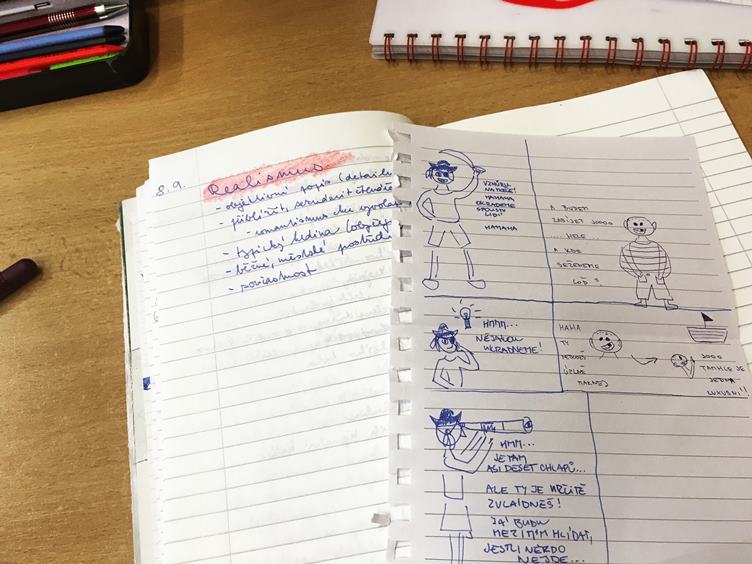 8.9.
Realismus
- objektivní popis (detailn
- přiblížit, seznámit čtenáře
- romantismus chce vyvolat
- typický hrdina (obyčej
- běžné, městské prostřed
- povídavost
VZHŮRU
NA MOŘE!
HAHAHA
OKRADEME
SPOUSTU
LIDÍ!
HAHAHA
A BUDEM
ZABÍJET JOOOO
... HELE ...
A KDE
SEŽENEME
LOĎ?
HMM...
NĚJAKOU
UKRADNEME!
HAHA
TY
ÚPLNĚ
JOOO
TAMHLE JE
JEDNA
LUXUSNÍ!!
HMM...
JE TAM
ASI DESET CHLAPŮ...
ALE TY JE URČITĚ
ZVLÁDNEŠ!
JÁ BUDU
MEZITÍM HLÍDAT,
JESTLI NĚKDO
NEJDE...